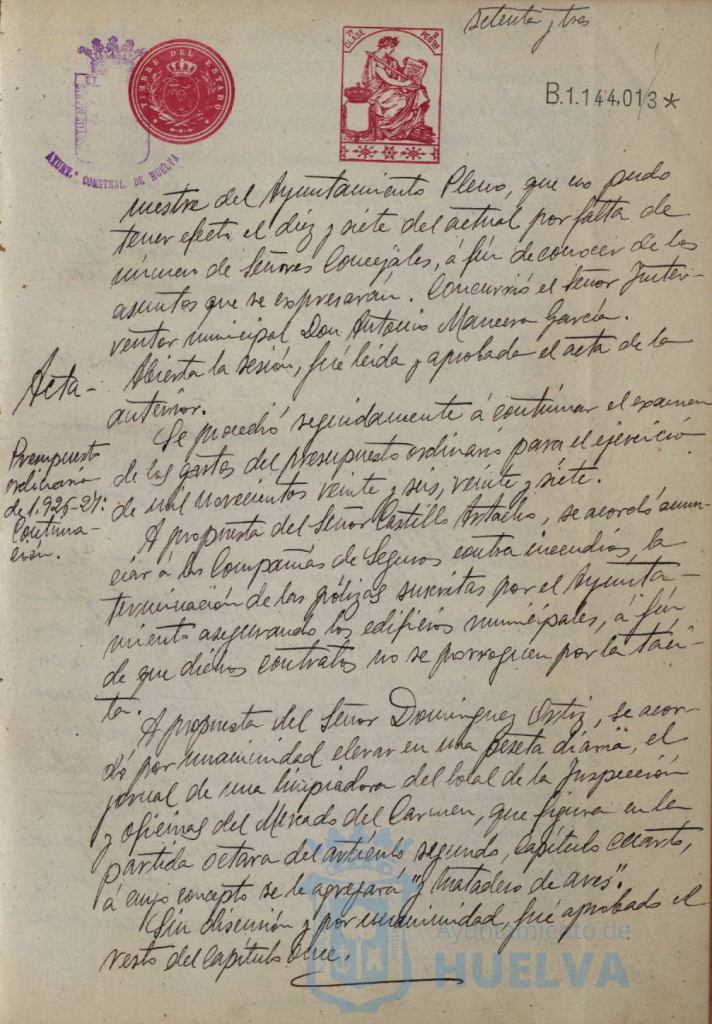 setenta y tres
TIMBRE DEL ESTADO
7ª CLASE
PESTAS
B.1.144,013*
AYUNT.º CONSTNAL. DE HUELVA
mestre del Ayuntamiento Pleno, que no pudo
tener efecto el diez y siete del actual por falta de
número de Señores Concejales, á fin de conocer de los
asuntos que se expresarán. Concurrió el Señor Inter-
ventor municipal Don Antonio Mancera García.
Acta-
Abierta la sesión, fué leida y aprobada el acta de la
anterior.
Presupuesto
ordinario
de 1.926-27:
Continua-
ción.
Se procedió seguidamente á continuar el examen
de los gastos del presupuesto ordinario para el ejercicio
de mil novecientos veinte y seis, veinte y siete.
A propuesta del Señor Castillo, se acordó anun-
ciar á las Compañías de Seguros contra incendios, la
terminación de las pólizas suscritas por el Ayunta-
miento asegurando los edificios municipales, á fin
de que dichos contratos no se porroguen por la táci-
ta.
A propuesta del Señor Dominguez Ortiz, se acor-
dó por unanimidad elevar en una peseta diaria, el
jornal de una limpiadora del local de la Inspección
y oficinas del Mercado del Carmen, que figura en la
partida octava del artículo segundo, capítulo cuarto,
á cuyo concepto se le agregará "y matadero de aves".
Sin discusión y por unanimidad, fué aprobado el
resto del capítulo once.
Ayuntamiento de
HUELVA